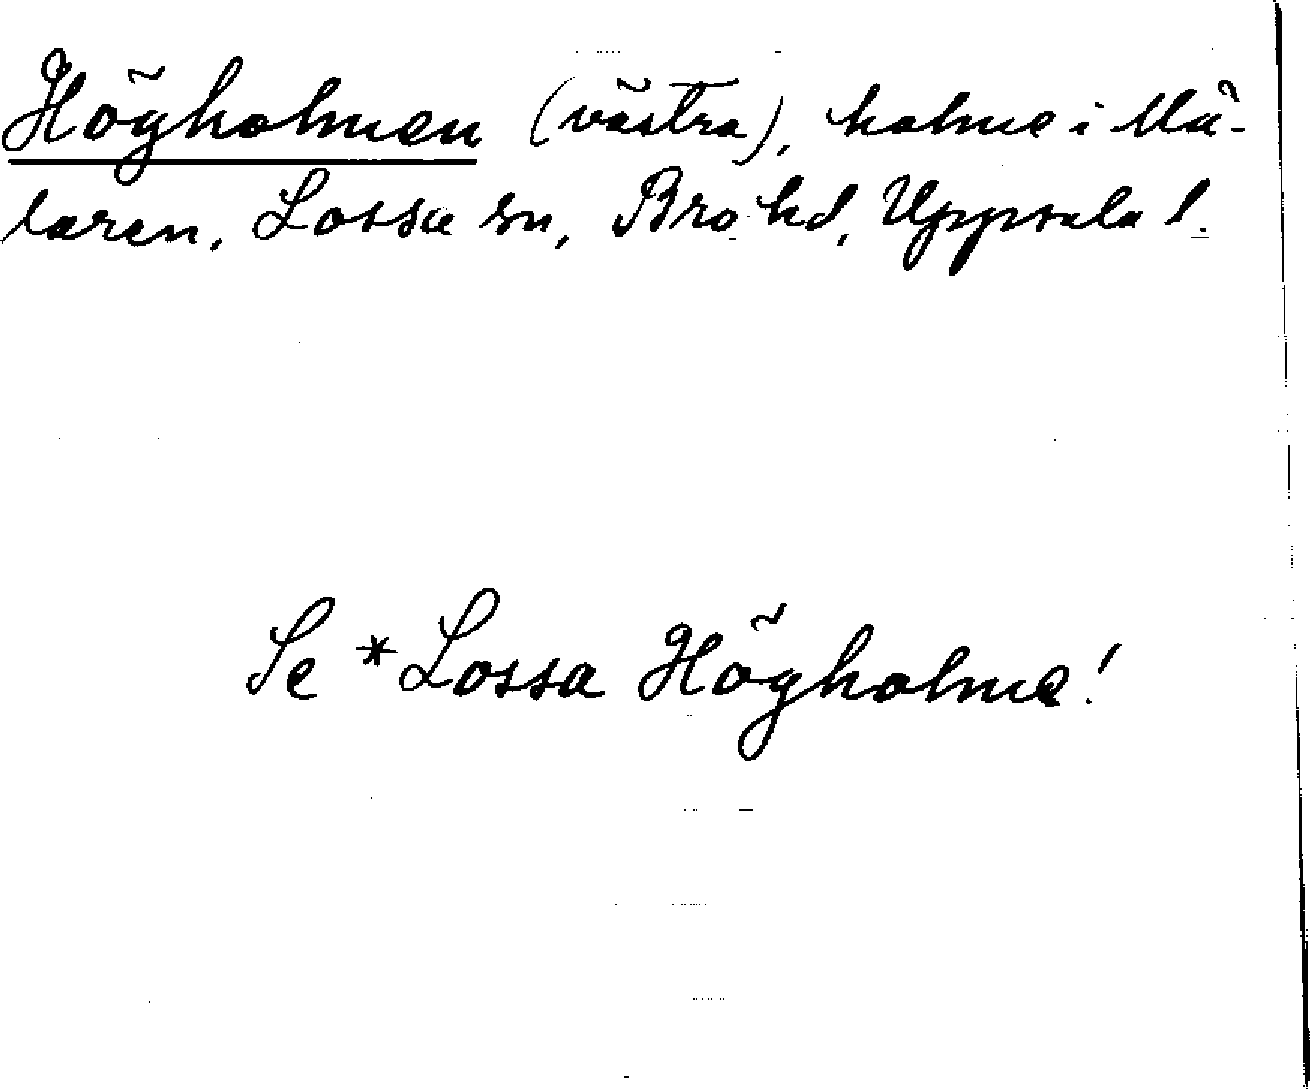 Högholmen (västra), holme i Mä-
laren, Lossa sn, Bro hd, Uppsala l.
Se *Lossa Högholme!